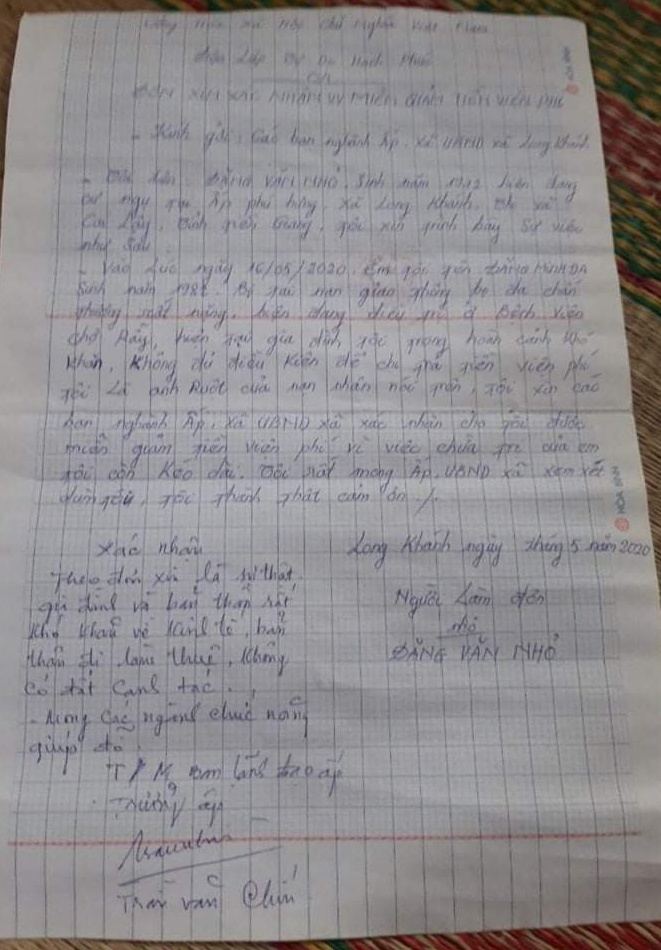 Cộng hòa xã hội chủ nghĩa việt Nam
Độc Lập Tự Do Hạnh Phúc
ĐƠN XIN XÁC NHẬN VV MIỄN GIẢM TIỀN VIỆN PHÍ
- Kính gửi: Các ban nghành Ấp, xã UBND xã Long Khánh.
- Tôi tên: ĐẶNG VĂN NHỎ, Sinh năm hiện đang
cư ngụ tại Ấp phú hưng, xã Long Khánh, thị xã
Cai Lậy, Tỉnh tiền Giang, tôi xin trình bày sự việc
như sau.
- Vào Lúc ngày 16/05/2020. Em tôi tên ĐẶNG MINH ĐA
Sinh năm 1982. Bị tai nạn giao thông bị đa chấn
thương rất nặng, hiện đang điều trị ở Bệnh viện
chợ Rẫy, hiện tại gia đình tôi trong hoàn cảnh khó
khăn, không đủ điều kiện để chi trả tiền viện phí
tôi Là anh Ruột của nạn nhân nói trên, tôi xin các
ban nghành Ấp, xã UBND xã xác nhận cho tôi được
miễn giảm tiền viện phí vì việc chữa trị của em
tôi còn kéo dài. Tôi rất mong Ấp, UBND xã xem xét
dùm tôi, tôi thành thật cảm ơn ./.
Long Khánh ngày tháng 5 năm 2020
Người Làm đơn
nhỏ
ĐẶNG VĂN NHỎ
xác nhận
Theo đơn xin là sự thật.
gia đình và bản thân rất
khó khăn về kinh tế, bản
thân đi làm thuê, không
có đất canh tác.
- Mong các ngành chức năng
giúp đỡ.
T/M Ban lãnh đạo ấp
Trưởng ấp
Trần văn
HÒA BÌNH
HÒA BÌNH